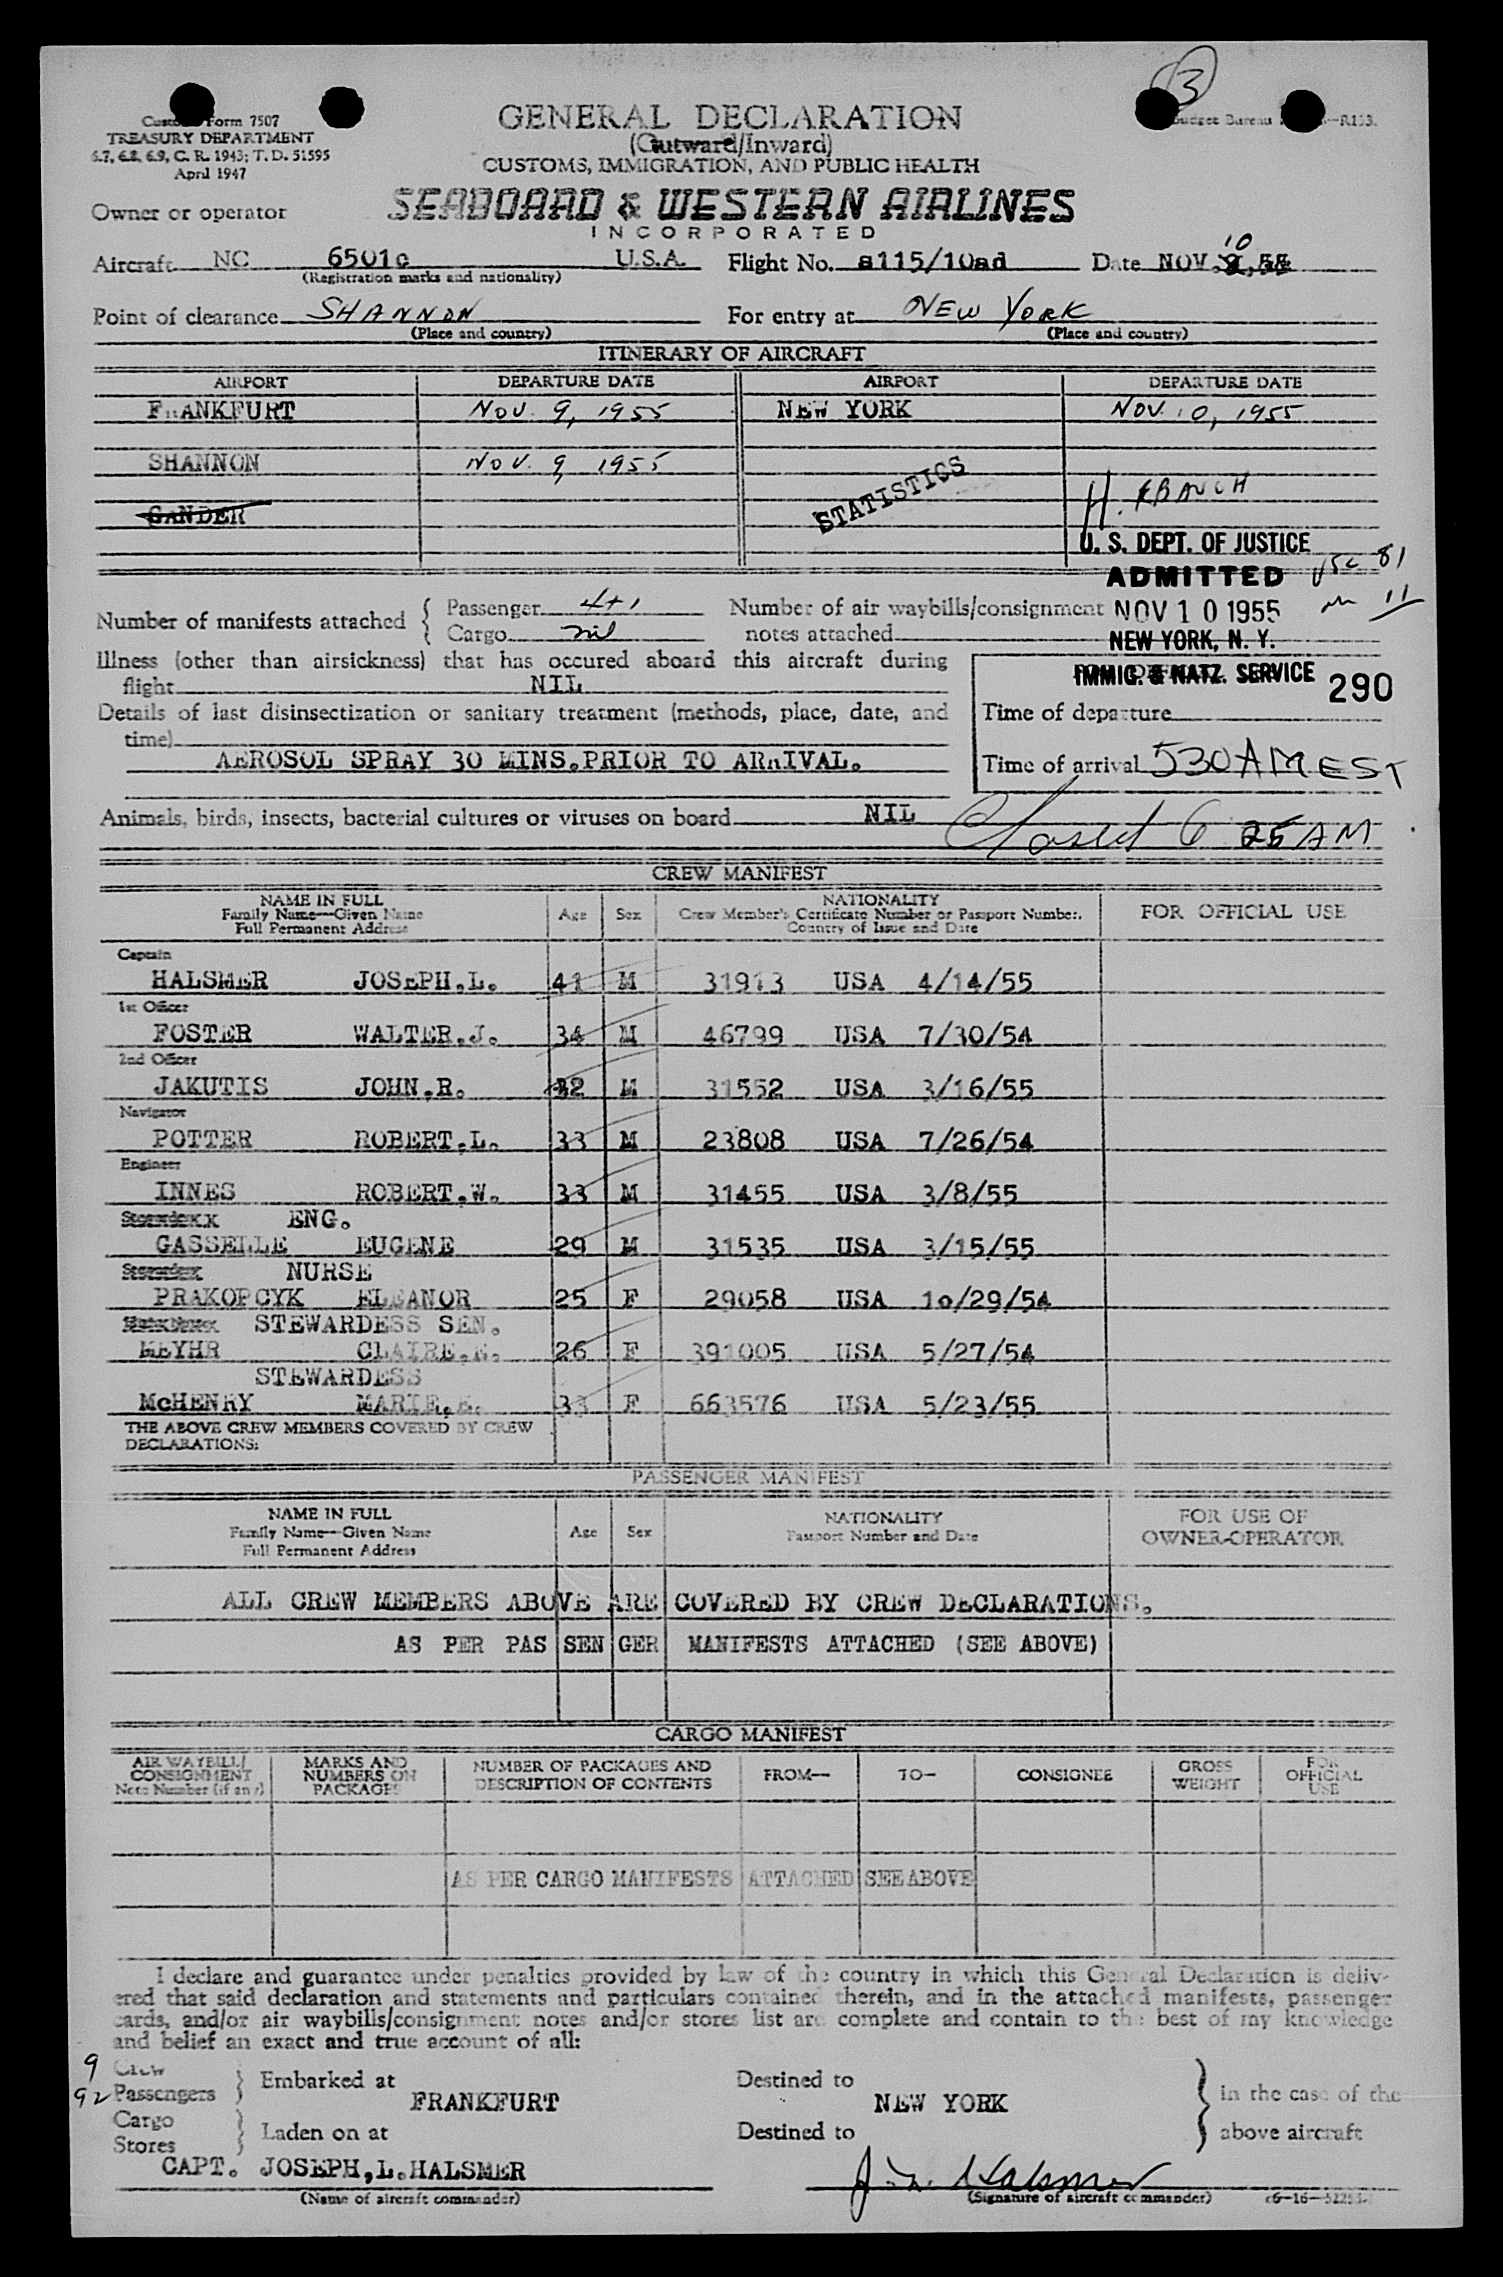 3
Form 7507
TREASURY DEPARTMENT
6.7, 6.8, 6.9, C. R. 1943; T. D. 51595
April 1947
Budget Bureau —R133.
GENERAL DECLARATION
(Outward/Inward)
CUSTOMS, IMMIGRATION, AND PUBLIC HEALTH
Owner or operator SEABOARD & WESTERN AIRLINES
INCORPORATED
Aircraft NC 6501c U.S.A. Flight No. s115/10ad Date NOV. 10
(Registration marks and nationality)
Point of clearance SHANNON For entry at NEW YORK
(Place and country) (Place and country)
ITINERARY OF AIRCRAFT
AIRPORT DEPARTURE DATE AIRPORT DEPARTURE DATE
FRANKFURT NOV. 9, 1955 NEW YORK NOV. 10, 1955
SHANNON NOV. 9 1955
STATISTICS
GANDER
U. S. DEPT. OF JUSTICE
ADMITTED USC 81
NOV 10 1955 11
NEW YORK, N. Y.
IMMIG. & NATZ. SERVICE 290
Number of manifests attached { Passenger 4+1 Number of air waybills/consignment
Cargo nil notes attached
Illness (other than airsickness) that has occured aboard this aircraft during
flight NIL
Details of last disinsectization or sanitary treatment (methods, place, date, and
time)
AEROSOL SPRAY 30 MINS.PRIOR TO ARRIVAL.
Time of departure
Time of arrival 530AM EST
Animals, birds, insects, bacterial cultures or viruses on board NIL
Closed 6 25 AM
CREW MANIFEST
NAME IN FULL
Family Name—Given Name
Full Permanent Address
Age Sex
NATIONALITY
Crew Member's Certificate Number or Passport Number.
Country of Issue and Date
FOR OFFICIAL USE
Captain
HALSMER JOSEPH.L. 41 M 31913 USA 4/14/55
1st Officer
FOSTER WALTER.J. 34 M 46799 USA 7/30/54
2nd Officer
JAKUTIS JOHN.R. 32 M 31552 USA 3/16/55
Navigator
POTTER ROBERT.L. 33 M 23808 USA 7/26/54
Engineer
INNES ROBERT.W. 33 M 31455 USA 3/8/55
ENG.
GASSELLE EUGENE 29 M 31535 USA 3/15/55
NURSE
PRAKOPCYK ELEANOR 25 F 29058 USA 10/29/54
STEWARDESS SEN.
MEYHR CLAIRE. 26 F 391005 USA 5/27/54
STEWARDESS
McHENRY MARIE. 33 F 663576 USA 5/23/55
THE ABOVE CREW MEMBERS COVERED BY CREW
DECLARATIONS:
PASSENGER MANIFEST
NAME IN FULL
Family Name—Given Name
Full Permanent Address
Age Sex
NATIONALITY
Passport Number and Date
FOR USE OF
OWNER-OPERATOR
ALL CREW MEMBERS ABOVE ARE COVERED BY CREW DECLARATIONS.
AS PER PAS SEN GER MANIFESTS ATTACHED (SEE ABOVE)
CARGO MANIFEST
AIR WAYBILL/
CONSIGNMENT
Note Number (if any)
MARKS AND
NUMBERS ON
PACKAGES
NUMBER OF PACKAGES AND
DESCRIPTION OF CONTENTS
FROM— TO— CONSIGNEE
GROSS
WEIGHT
FOR
OFFICIAL
USE
AS PER CARGO MANIFESTS ATTACHED SEE ABOVE
I declare and guarantee under penalties provided by law of the country in which this General Declaration is deliv-
ered that said declaration and statements and particulars contained therein, and in the attached manifests, passenger
cards, and/or air waybills/consignment notes and/or stores list are complete and contain to the best of my knowledge
and belief an exact and true account of all:
9 Crew
92 Passengers } Embarked at FRANKFURT Destined to NEW YORK } in the case of the
Cargo
Stores } Laden on at Destined to above aircraft
CAPT. JOSEPH,L.HALSMER J. L. Halsmer
(Name of aircraft commander) (Signature of aircraft commander)